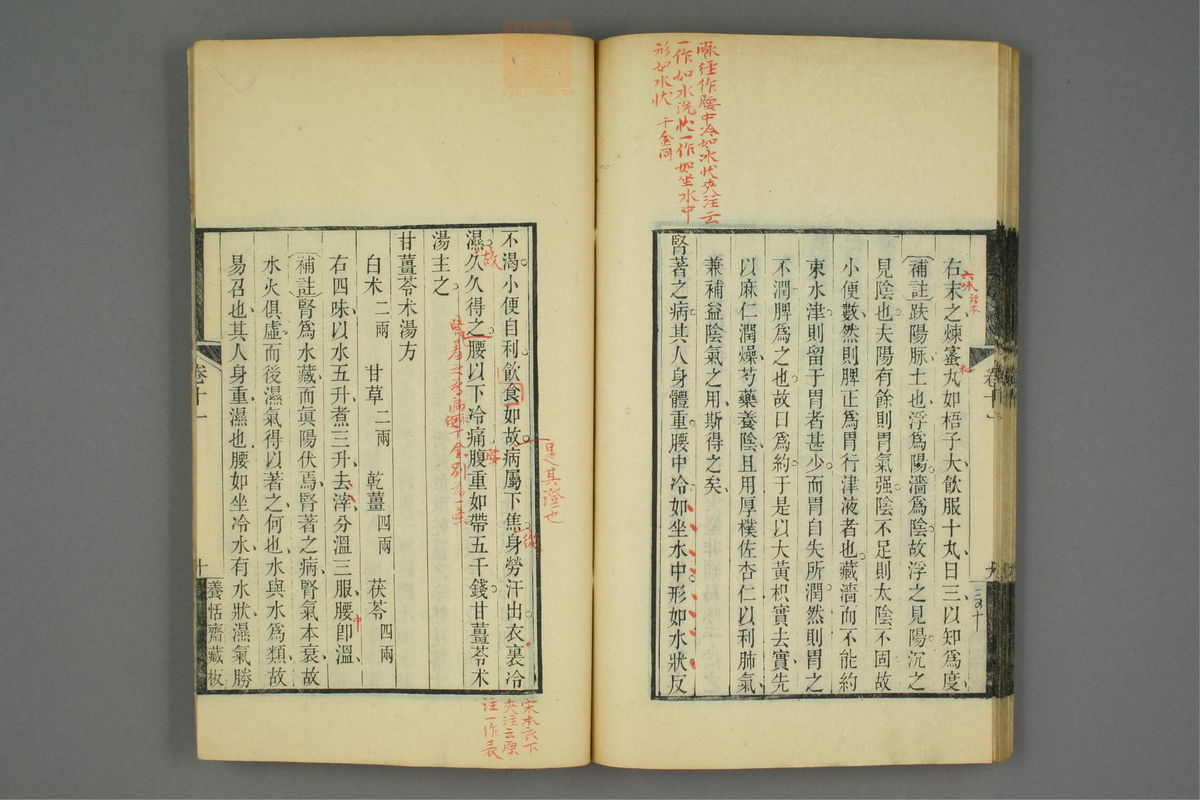 脉经作腰中冷如冰状夹注云
一作如水洗状一作如坐水中
形如水状 千金同
右末之煉蜜丸如梧子大飲服十丸日三以知爲度
六味
補註趺陽脉土也浮爲陽濇爲陰故浮之見陽沉之
見陰也夫陽有餘則胃氣强陰不足則太陰不固故
小便數然則脾正爲胃行津液者也藏濇而不能約
束水津則留于胃者甚少而胃自失所潤然則胃之
不潤脾爲之也故曰爲約于是以大黃枳實去實先
以麻仁潤燥芍藥養陰且用厚樸佐杏仁以利肺氣
兼補益陰氣之用斯得之矣
腎著之病其人身體重腰中冷如坐水中形如水狀反
卷十一
九
不渴小便自利飲食如故病屬下焦身勞汗出衣裏冷
是其證也
故
濕久久得之腰以下冷痛腹重如帶五千錢甘薑苓术
腰
湯主之
甘薑苓术湯方
白术二兩 甘草二兩 乾薑四兩 茯苓四兩
右四味以水五升煮三升去滓分溫三服腰卽溫
中
補註腎爲水藏而眞陽伏焉腎著之病腎氣本衰故
水火俱虛而後濕氣得以著之何也水與水爲類故
易召也其人身重濕也腰如坐冷水有水狀濕氣勝
卷十一
十
養恬齋藏板
宋本衣下
夹注云原
注一作表